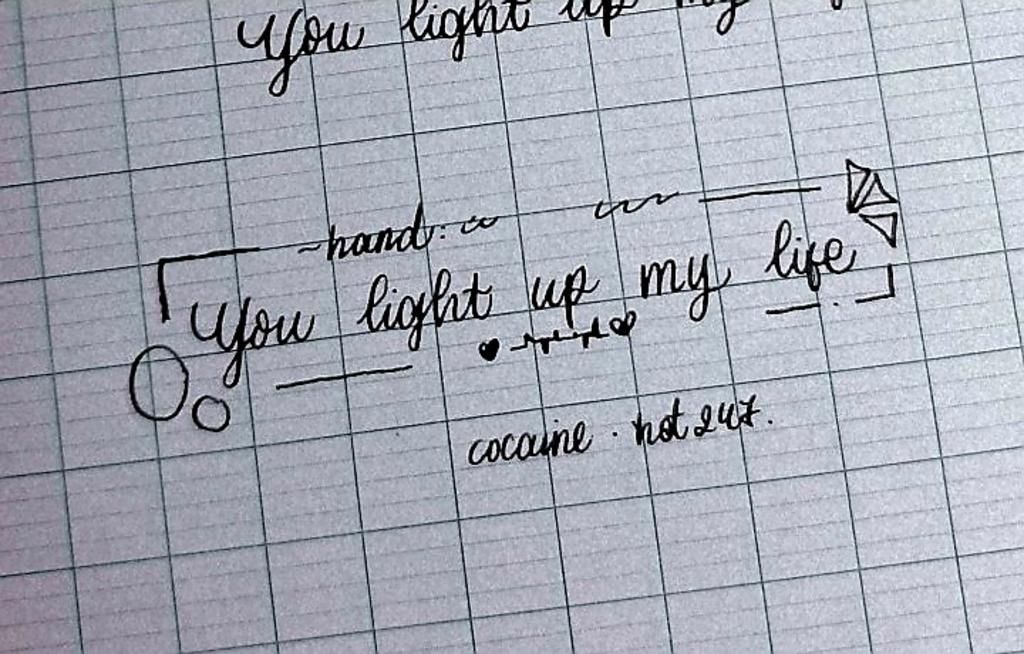 You light up my
hand.
You light up my life
cocaine. hot 247.